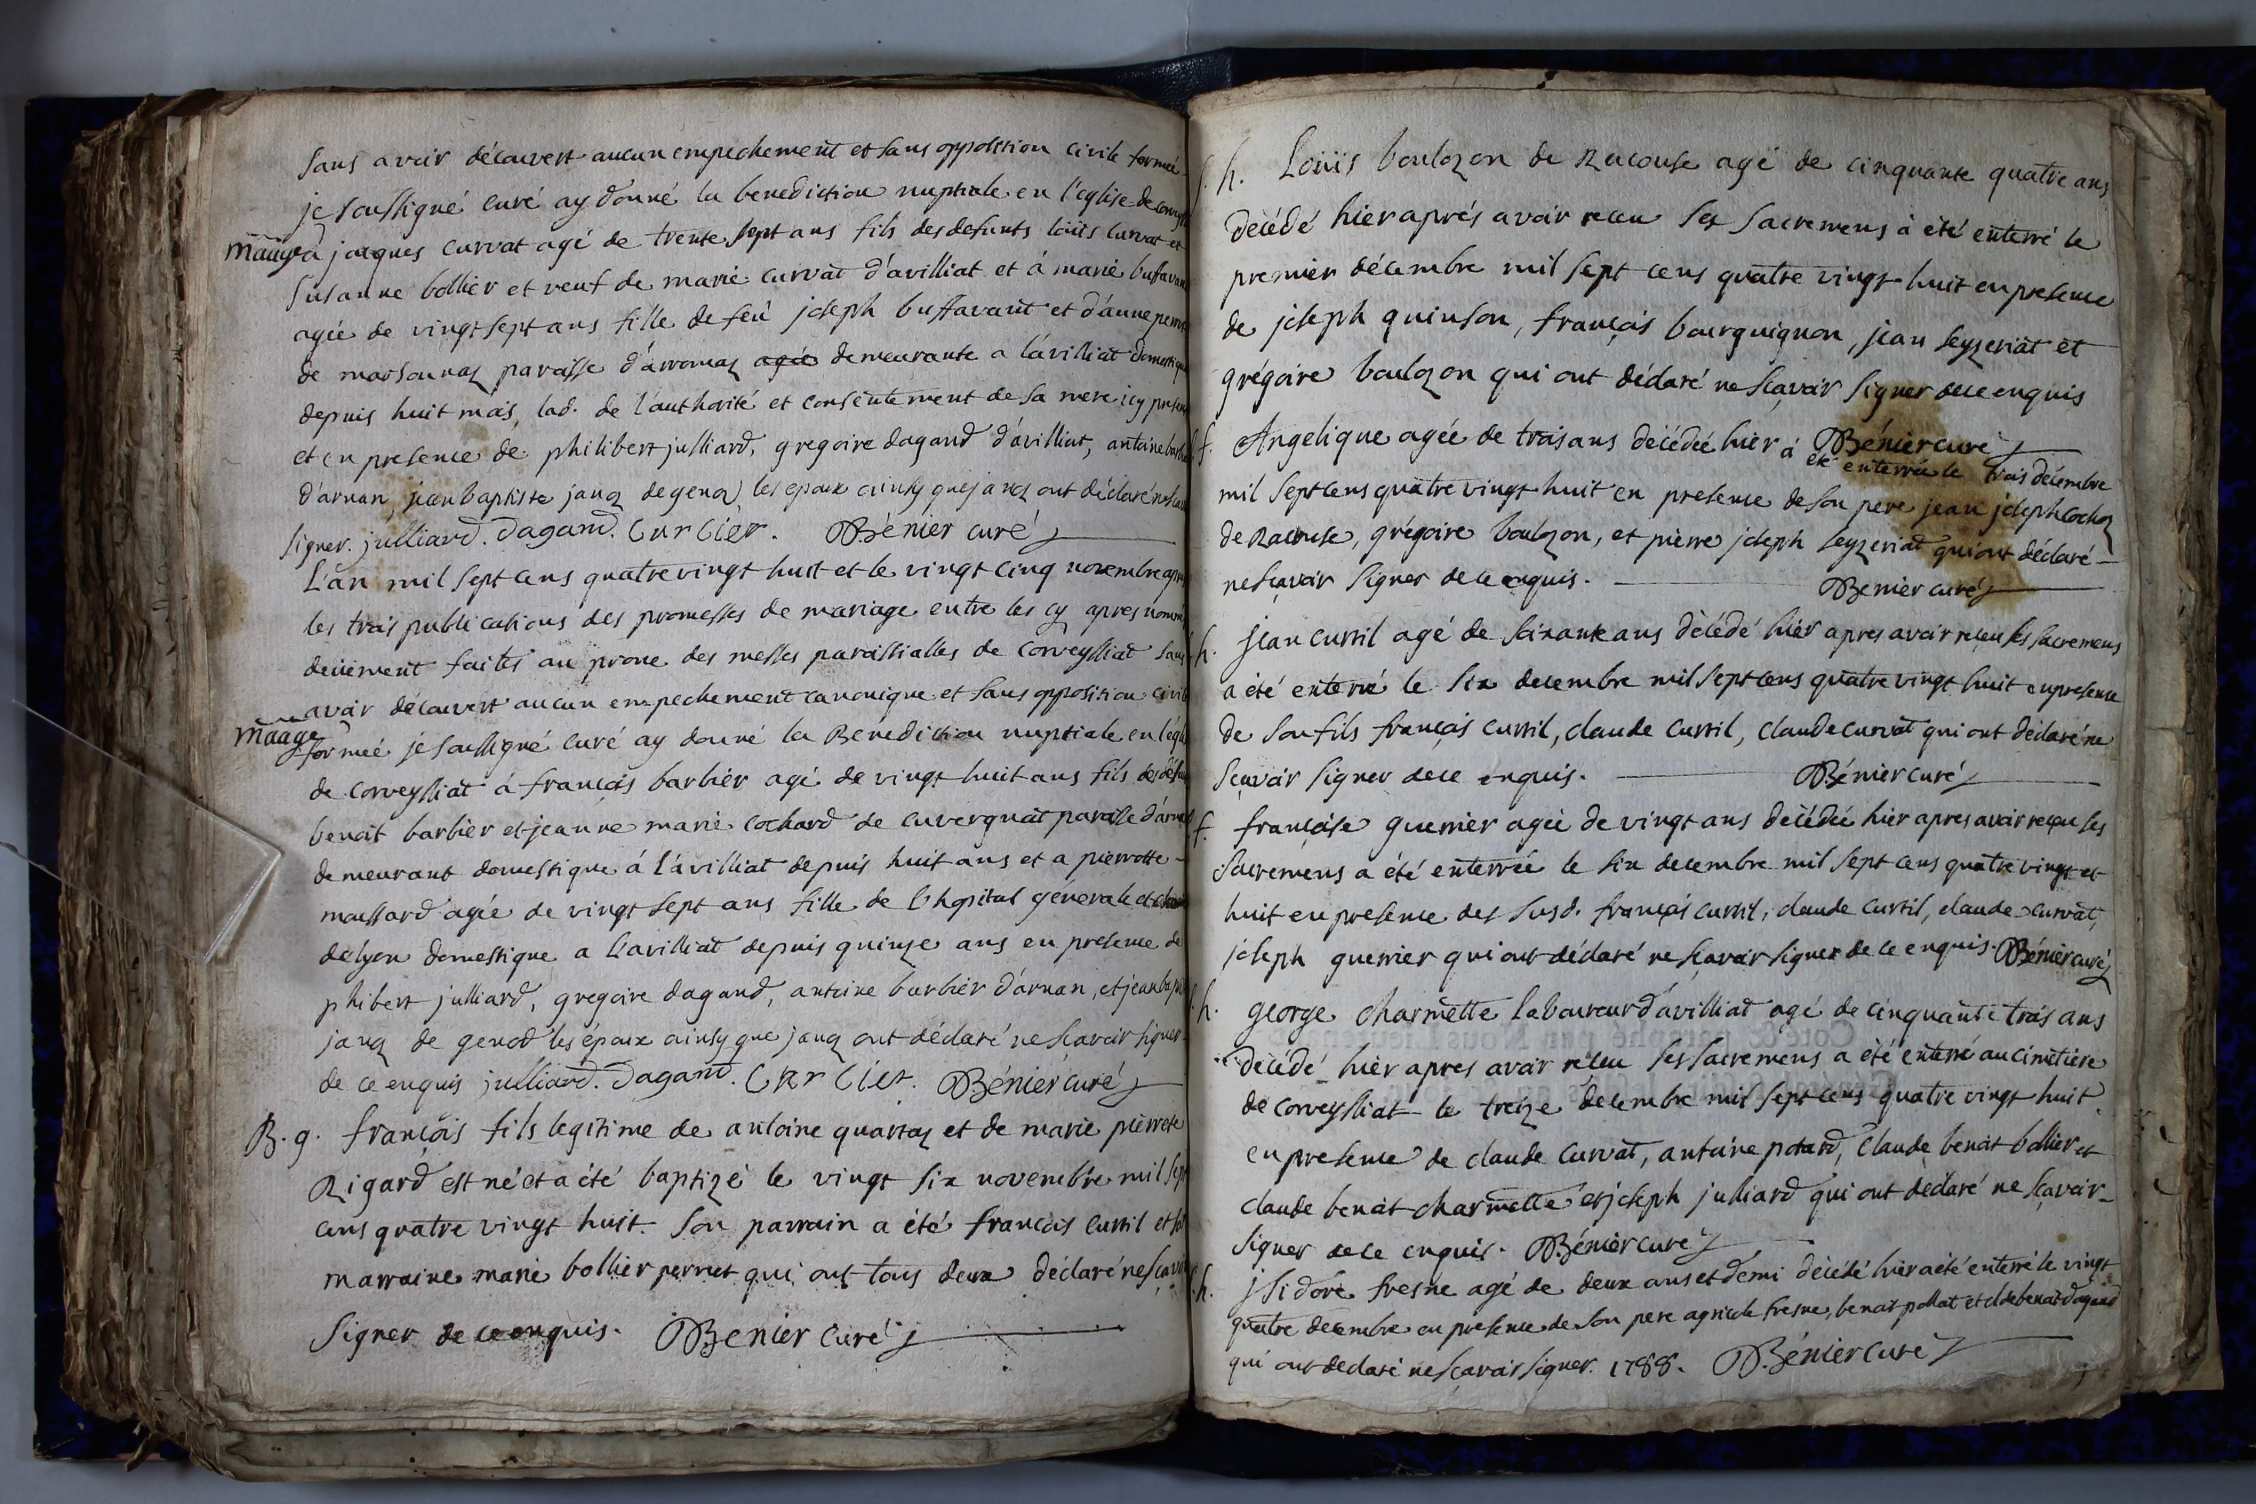 sans avoir découvert aucun empechement et sans opposition civile formée
je soussigné curé ay donné la benediction nuptiale en l'eglise de
mãage a jacques curvat agé de trente sept ans fils des defunts loüis curvat et
susanne bollier et veuf de marie curvat d'avilliat et à marie buffavan
agée de vingt sept ans fille de feû joseph buffavant et d'anne
de marsonnaz paroisse d'arromaz agée demeurante a lavilliat domestique
depuis huit mois, lad. de l'authorité et consentement de sa mere icy
et en presence de philibert julliard, gregoire dagand d'avilliat, antoine
d'arnan, jean baptiste janz de genoz les epoux ainsy que janz ont déclaré
signer. julliard. Dagand. Curlier. Bénier curé
L'an mil sept cens quatre vingt huit et le vingt cinq novembre
les trois publications des promesses de mariage entre les cy apres
deüement faites au prone des messes paroissialles de corveyssiat sans
avoir découvert aucun empechement canonique et sans opposition civile
mãage formeé je soussigné curé ay donné la Benédiction nuptiale en
de corveyssiat á françois barbier agé de vingt huit ans fils des
benoit barbier et jeanne marie cochard de cuvergnat paroisse
demeurant domestique á lávilliat depuis huit ans et a pierrotte
moussard agée de vingt sept ans fille de l'hopital génerale et
de lyon domestique a lavilliat depuis quinze ans en presence de
phibert julliard, gregoire dagand, antoine barbier d'arnan, et jean
janz de genod les époux ainsy que janz ont déclaré ne sçavoir signer
de ce enquis julliard. Dagand. Curlier. Bénier curé
B. g. françois fils legitime de antoine quartaz et de marie pierrete
Rigard est né et a été baptizé le vingt six novembre mil sept
cens quatre vingt huit. son parrain a été françois curtil et
marraine marie bollier perret qui ont tous deux déclaré
signer de ce enquis. Bénier curé
s. h. Loüis boulozon de Racouse agé de cinquante quatre ans
décédé hier aprés avoir receu ses sacremens á été enterré le
premier décembre mil sept cens quatre vingt huit en presence
de joseph quinson, françois bourguignon, jean seyzeriat et
grégoire boulozon qui ont déclaré ne sçavoir signer de ce enquis
Bénier curé
f. Angelique agée de trois ans décédée hier á été enterrée le trois décembre
mil sept cens quatre vingt huit en presence de son pere jean joseph cochoz
de Racouse, grégoire boulozon, et pierre joseph seyzeriat qui ont déclaré
ne sçavoir signer de ce enquis. Benier curé
h. jean curtil agé de soixante ans décédé hier apres avoir reçeu ses sacremens
a été enterré le six decembre mil sept cens quatre vingt huit en presence
de son fils françois curtil, claude curtil, claude curvat qui ont déclaré ne
sçavoir signer de ce enquis. Bénier curé
f. françoise guerrier agée de vingt ans décédée hier apres avoir reçeu ses
sacremens a été enterrée le six decembre mil sept cens quatre vingt et
huit en presence des susd. françois curtil, claude curtil, claude curvat,
joseph guerrier qui ont déclaré ne sçavoir signer de ce enquis. Bénier curé
h. george charmette laboureur d'avilliat agé de cinquante trois ans
décédé hier apres avoir reçeu ses sacremens a été enterré au cimetiere
de corveyssiat le treize decembre mil sept cens quatre vingt huit
en presence de claude curvat, antoine potard, claude benoit bollier et
claude benoit charmette et joseph julliard qui ont déclaré ne sçavoir
signer de ce enquis. Bénier curé
h. jsidore fresne agé de deux ans et demi décédé hier a été enterré le vingt
quatre decembre en presence de son pere agricole fresne, benoit pollat et cldebenoit dagand
qui ont declaré ne sçavoir signer. 1788. Bénier curé